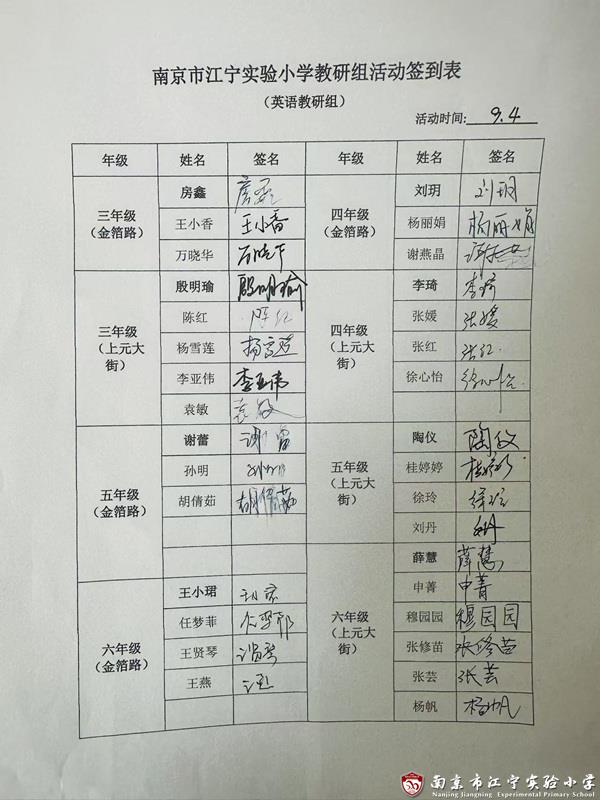 南京市江宁实验小学教研组活动签到表
（英语教研组）
活动时间: 9.4
年级 姓名 签名 年级 姓名 签名
三年级（金箔路） 房鑫 四年级（金箔路） 刘玥 刘玥
王小香 王小香 杨丽娟 杨丽娟
万晓华 万晓华 谢燕晶
三年级（上元大街） 殷明瑜 殷明瑜 四年级（上元大街） 李琦 李琦
陈红 陈红 张媛 张媛
杨雪莲 杨雪莲 张红 张红
李亚伟 李亚伟 徐心怡 徐心怡
袁敏 袁敏
五年级（金箔路） 谢蕾 谢蕾 五年级（上元大街） 陶仪 陶仪
孙明 孙明 桂婷婷 桂婷婷
胡倩茹 胡倩茹 徐玲 徐玲
刘丹
六年级（上元大街） 薛慧 薛慧
六年级（金箔路） 王小珺 申菁 申菁
任梦菲 穆园园 穆园园
王贤琴 张修苗 张修苗
王燕 张芸 张芸
杨帆 杨帆
南京市江宁实验小学
Nanjing Jiangning Experimental Primary School